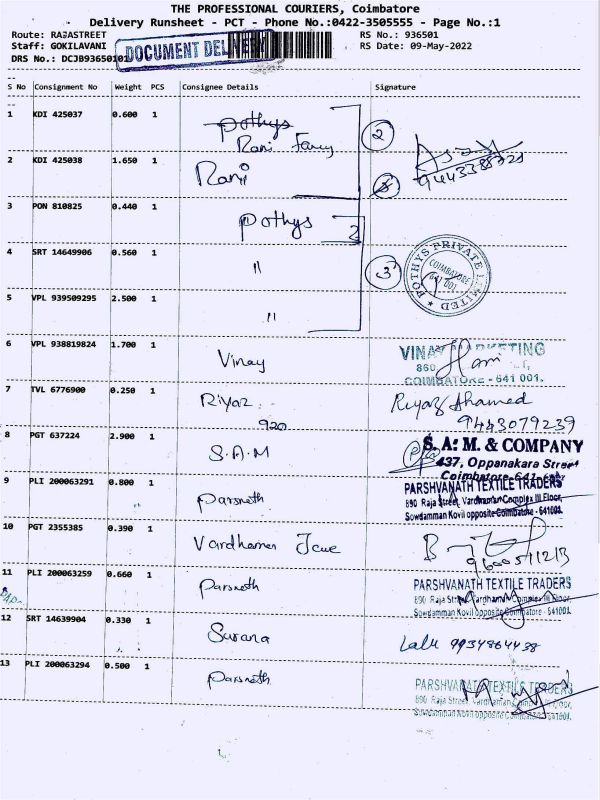 THE PROFESSIONAL COURIERS, Coimbatore
Delivery Runsheet - PCT - Phone No.:0422-3505555 - Page No.:1
Route: RAJASTREET RS No.: 936501
Staff: GOKILAVANI RS Date: 09-May-2022
DRS No.: DCJB93650101
DOCUMENT DEL
S No Consignment No Weight PCS Consignee Details Signature
1 KDI 425037 0.600 1 pothys
Rani Fancy 2
2 KDI 425038 1.650 1 Rani
9443385721
3 PON 810825 0.440 1 pothys 2
4 SRT 14649906 0.560 1 " 3 POTHYS PRIVATE LIMITED COIMBATORE 641 001
5 VPL 939509295 2.500 1 "
6 VPL 938819824 1.700 1 Vinay
VINAY MARKETING
860
COIMBATORE - 641 001.
7 TVL 6776900 0.250 1 Riyaz Riyaz Ahamed
920 9443079239
8 PGT 637224 2.900 1 S.A.M
S.A. M. & COMPANY
437, Oppanakara Street
Coimbatore
9 PLI 200063291 0.800 1 Parsneth
PARSHVANATH TEXTILE TRADERS
890 Raja Street, Vardhaman Complex III Floor,
Sowdamman Kovil opposite Coimbatore - 641001.
10 PGT 2355385 0.390 1 Vardhaman
9600511213
11 PLI 200063259 0.660 1 Parsneth
PARSHVANATH TEXTILE TRADERS
890 Raja Street, Vardhaman Complex III Floor,
Sowdamman Kovil opposite Coimbatore - 641001.
12 SRT 14639904 0.330 1 Surana Lalu 9934864438
13 PLI 200063294 0.500 1 Parsneth
PARSHVANATH TEXTILE TRADERS
890 Raja Street, Vardhaman Complex III Floor,
Sowdamman Kovil opposite Coimbatore - 641001.